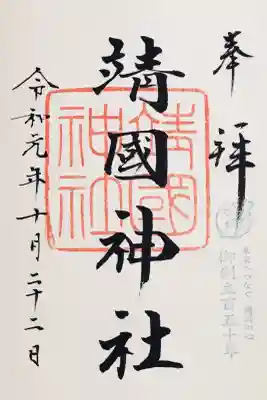 奉拝
靖國神社
令和元年十月二十二日
靖國神社
御創立百五十年